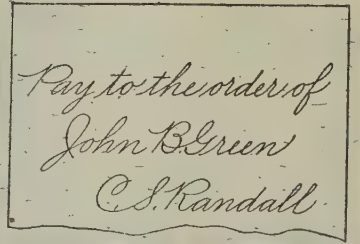 Pay to the order of
John B. Green
C. S. Randall